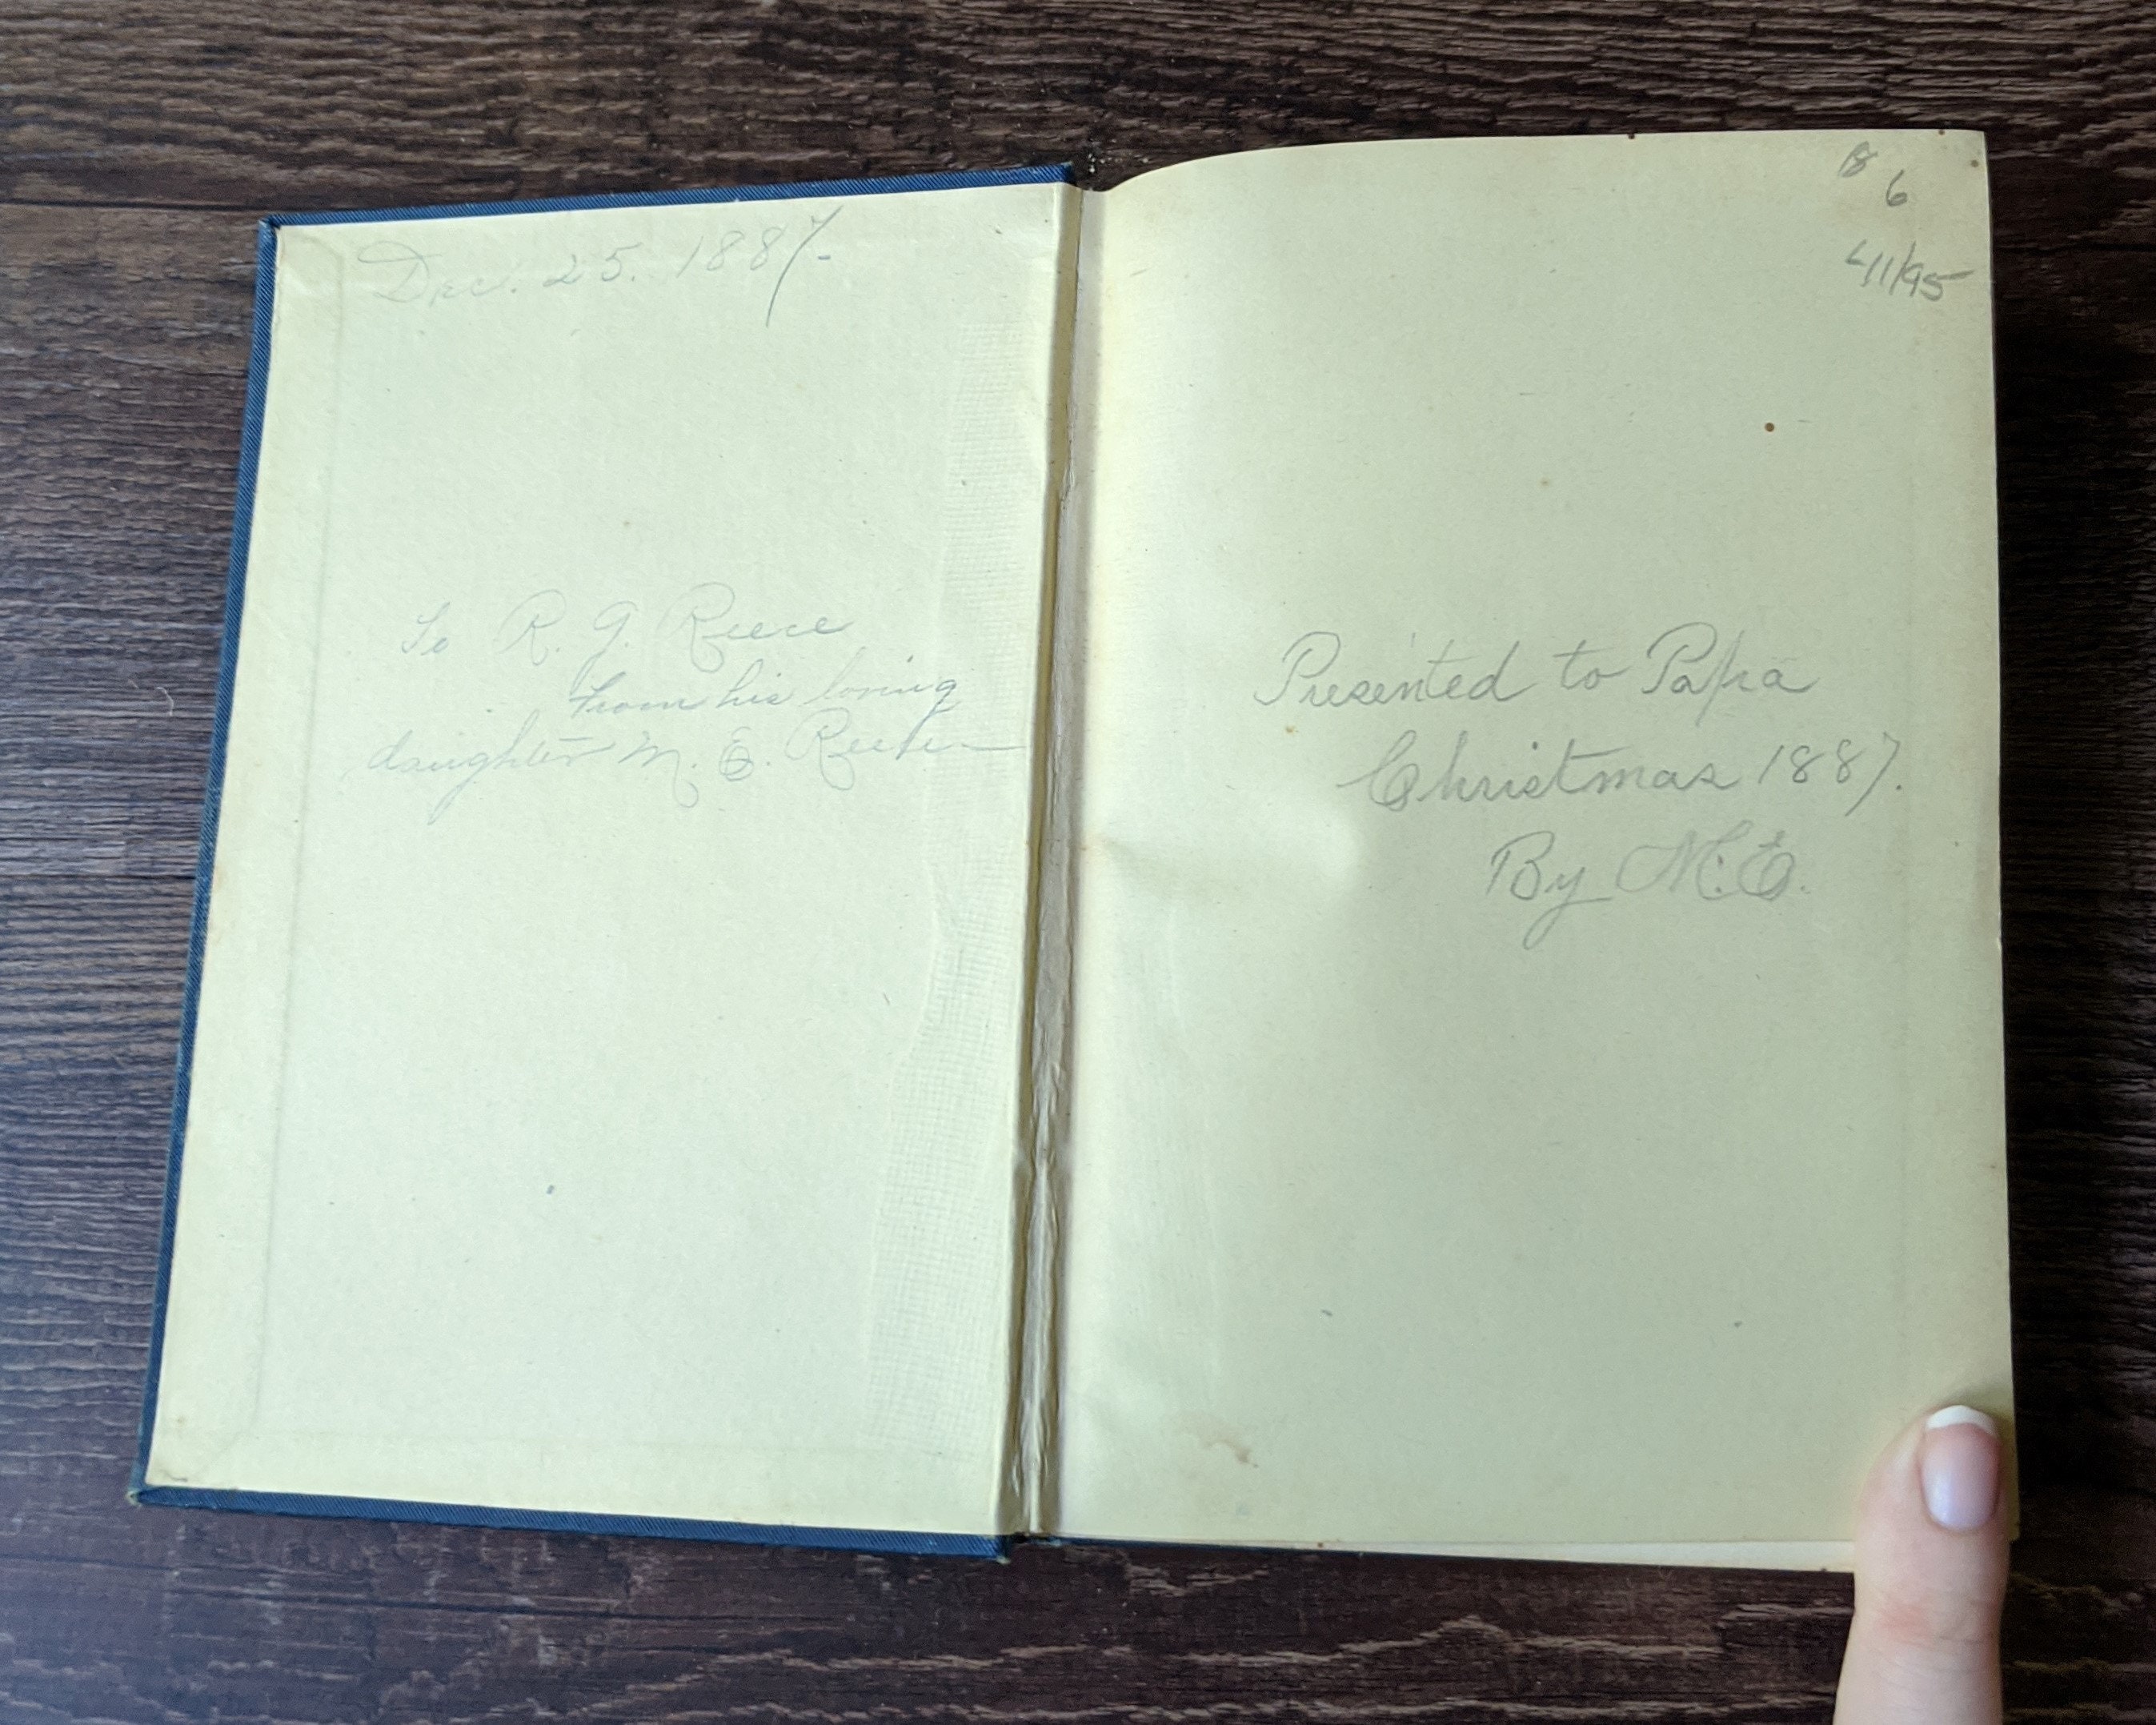 Dec. 25. 1887.
To R. G. Reece
From his loving
daughter M. E. Reece
6
4/1/95
Presented to Papa
Christmas 1887.
By M.E.